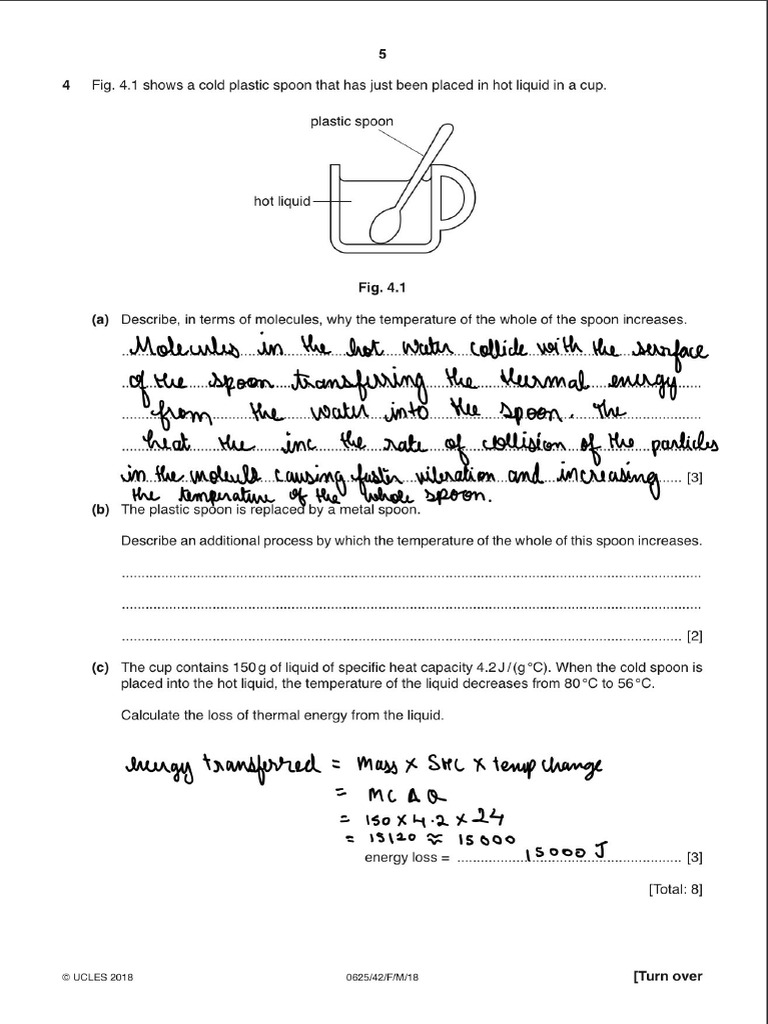 5
4 Fig. 4.1 shows a cold plastic spoon that has just been placed in hot liquid in a cup.
plastic spoon
hot liquid
Fig. 4.1
(a) Describe, in terms of molecules, why the temperature of the whole of the spoon increases.
Molecules in the hot water collide with the surface
of the spoon transferring the thermal energy
from the water into the spoon. The
heat the inc the rate of collision of the particles
in the molecule causing faster vibration and increasing [3]
the temperature of the whole spoon.
(b) The plastic spoon is replaced by a metal spoon.
Describe an additional process by which the temperature of the whole of this spoon increases.
[2]
(c) The cup contains 150 g of liquid of specific heat capacity 4.2 J / (g °C). When the cold spoon is
placed into the hot liquid, the temperature of the liquid decreases from 80 °C to 56 °C.
Calculate the loss of thermal energy from the liquid.
energy transferred = Mass × SHC × temp change
= MC Δ Q
= 150 × 4.2 × 24
= 15120 ≈ 15000
energy loss = 15000 J [3]
[Total: 8]
© UCLES 2018 0625/42/F/M/18 [Turn over